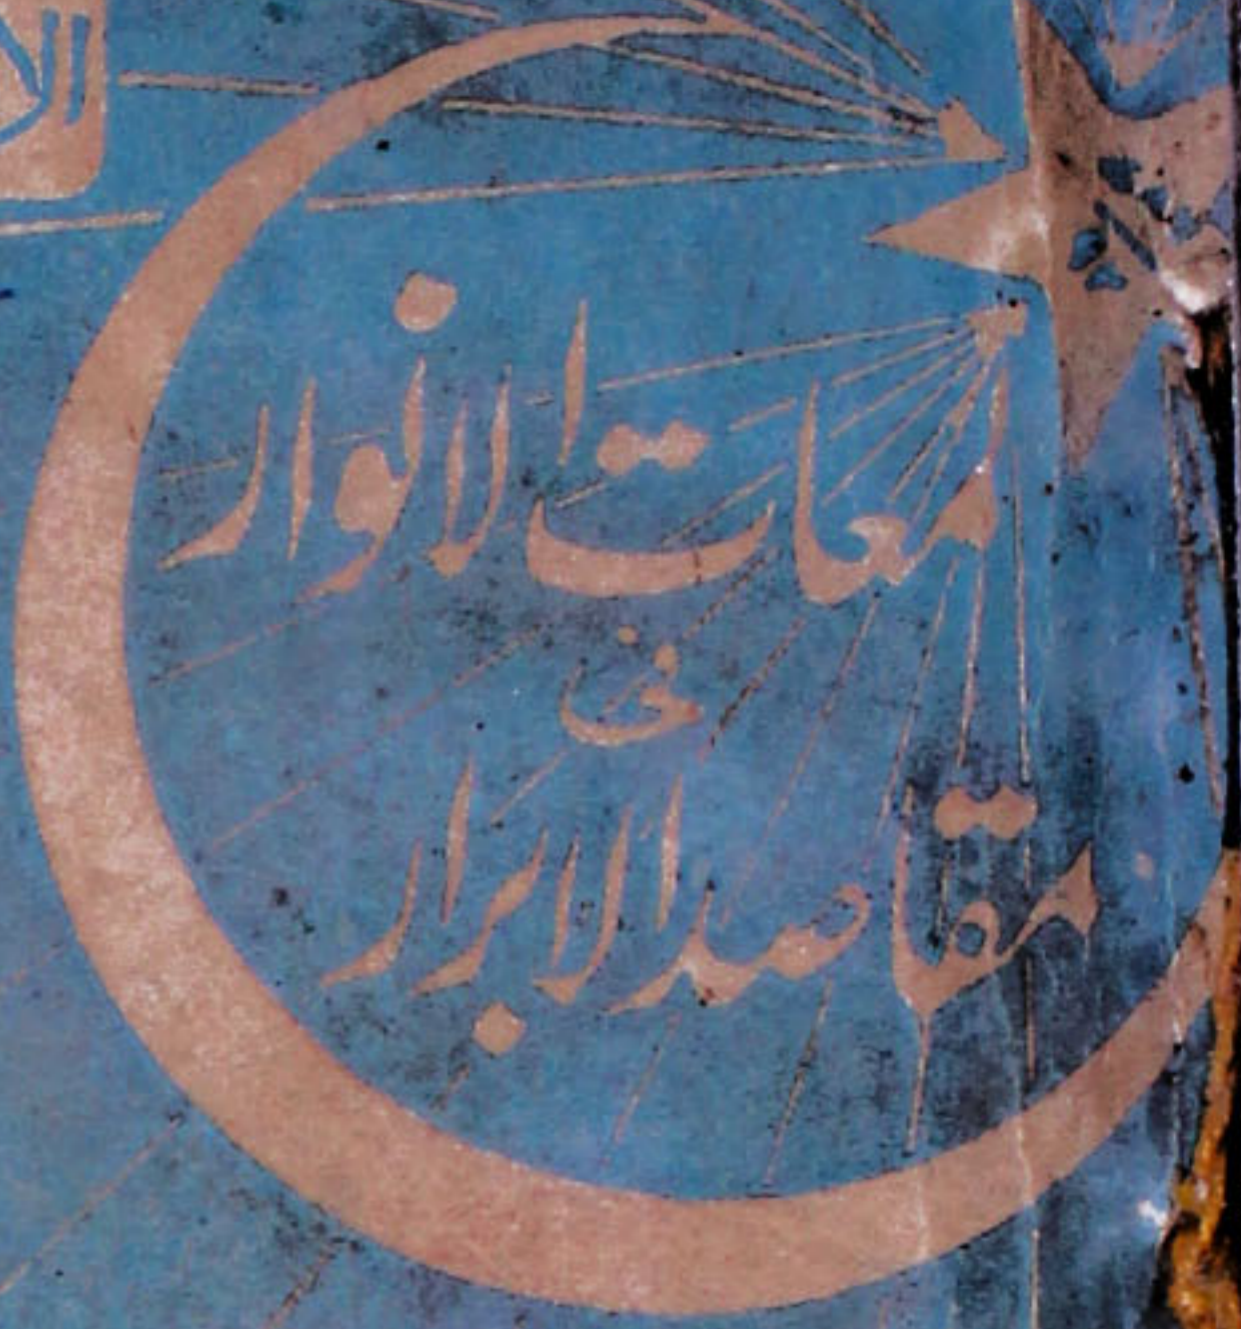 لمعات الانوار
فی
مقاصد الابرار